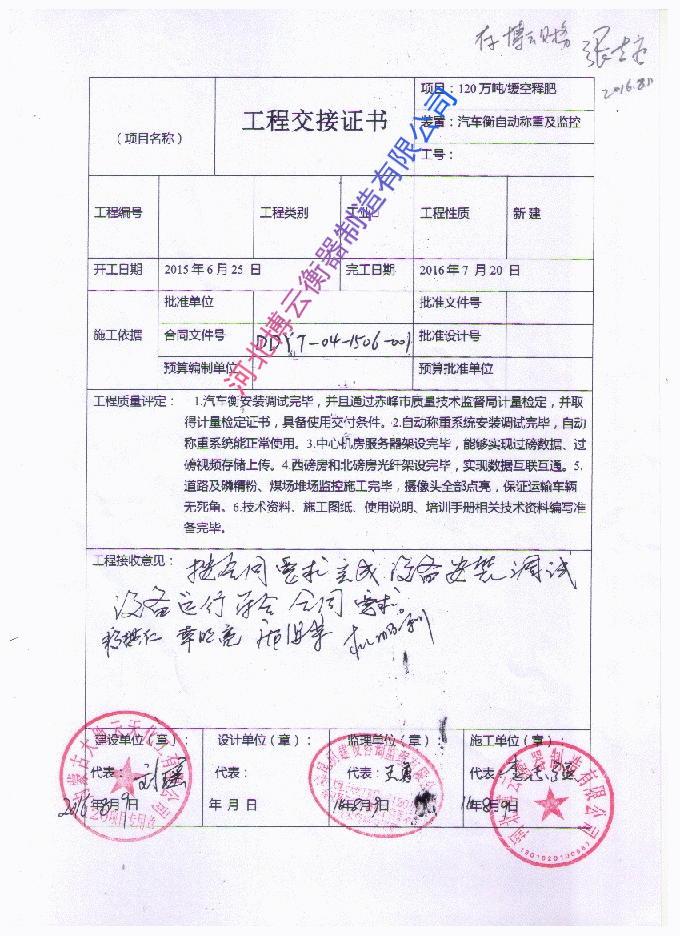 存博云财务
2016.8.11
工程交接证书
(项目名称)
项目:120万吨/缓空释肥
装置:汽车衡自动称重及监控
工号:
工程编号 工程类别 工程性质 新建
开工日期 2015年6月25日 完工日期 2016年7月20日
施工依据 批准单位 批准文件号
合同文件号 DDYT-04-1506-001 批准设计号
预算编制单位 预算批准单位
工程质量评定: 1.汽车衡安装调试完毕,并且通过赤峰市质量技术监督局计量检定,并取
得计量检定证书,具备使用交付条件。2.自动称重系统安装调试完毕,自动
称重系统能正常使用。3.中心机房服务器架设完毕,能够实现过磅数据、过
磅视频存储上传。4.西磅房和北磅房光纤架设完毕,实现数据互联互通。5.
道路及磷精粉、煤场堆场监控施工完毕,摄像头全部点亮,保证运输车辆
无死角。6.技术资料、施工图纸、使用说明、培训手册相关技术资料编写准
备完毕。
工程接收意见: 按合同要求完成设备安装调试
设备运行符合合同要求。
建设单位(章): 设计单位(章): 监理单位(章): 施工单位(章):
代表: 代表: 代表:王勇 代表:
2016年8月9日 年 月 日 16年8月9日 16年8月9日
河北博云衡器制造有限公司